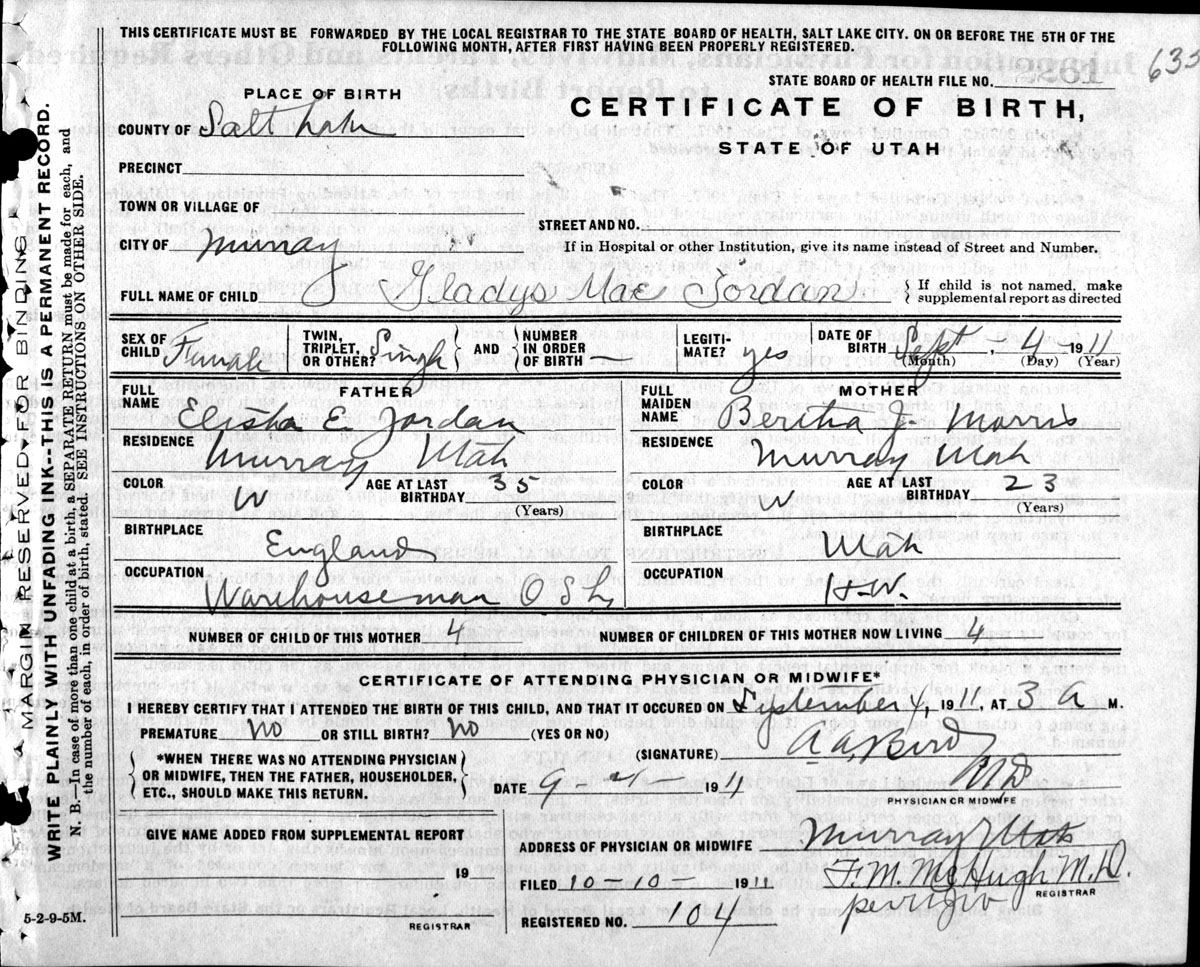 THIS CERTIFICATE MUST BE FORWARDED BY THE LOCAL REGISTRAR TO THE STATE BOARD OF HEALTH, SALT LAKE CITY. ON OR BEFORE THE 5TH OF THE
FOLLOWING MONTH, AFTER FIRST HAVING BEEN PROPERLY REGISTERED.
633
STATE BOARD OF HEALTH FILE NO.
PLACE OF BIRTH
CERTIFICATE OF BIRTH,
STATE OF UTAH
COUNTY OF Salt Lake
PRECINCT
TOWN OR VILLAGE OF
STREET AND NO.
CITY OF Murray
If in Hospital or other Institution, give its name instead of Street and Number.
FULL NAME OF CHILD Gladys Mae Jordan { If child is not named, make
supplemental report as directed
SEX OF CHILD Female
TWIN, TRIPLET, OR OTHER? Single } AND { NUMBER IN ORDER OF BIRTH —
LEGITI-MATE? yes
DATE OF BIRTH Sept - 4 1911
(Month) (Day) (Year)
FATHER
FULL NAME Elisha E. Jordan
RESIDENCE Murray Utah
COLOR W AGE AT LAST BIRTHDAY 35
(Years)
BIRTHPLACE England
OCCUPATION Warehouseman O S L
MOTHER
FULL MAIDEN NAME Bertha J. Morris
RESIDENCE Murray Utah
COLOR W AGE AT LAST BIRTHDAY 23
(Years)
BIRTHPLACE Utah
OCCUPATION H.W.
NUMBER OF CHILD OF THIS MOTHER 4 NUMBER OF CHILDREN OF THIS MOTHER NOW LIVING 4
CERTIFICATE OF ATTENDING PHYSICIAN OR MIDWIFE*
I HEREBY CERTIFY THAT I ATTENDED THE BIRTH OF THIS CHILD, AND THAT IT OCCURED ON September 4, 1911, AT 3 a M.
PREMATURE No OR STILL BIRTH? No (YES OR NO)
(SIGNATURE) A A Bird
MD
PHYSICIAN OR MIDWIFE
*WHEN THERE WAS NO ATTENDING PHYSICIAN
OR MIDWIFE, THEN THE FATHER, HOUSEHOLDER,
ETC., SHOULD MAKE THIS RETURN.
DATE 9 - 4 - 1911
GIVE NAME ADDED FROM SUPPLEMENTAL REPORT
19
REGISTRAR
ADDRESS OF PHYSICIAN OR MIDWIFE Murray Utah
FILED 10-10- 1911 F. M. McHugh M.D.
REGISTRAR
per
REGISTERED NO. 104
5-2-9-5M.
MARGIN RESERVED FOR BINDING
WRITE PLAINLY WITH UNFADING INK--THIS IS A PERMANENT RECORD.
N. B.—In case of more than one child at a birth, SEPARATE RETURN must be made for each, and
the number of each, in order of birth, stated. SEE INSTRUCTIONS ON OTHER SIDE.